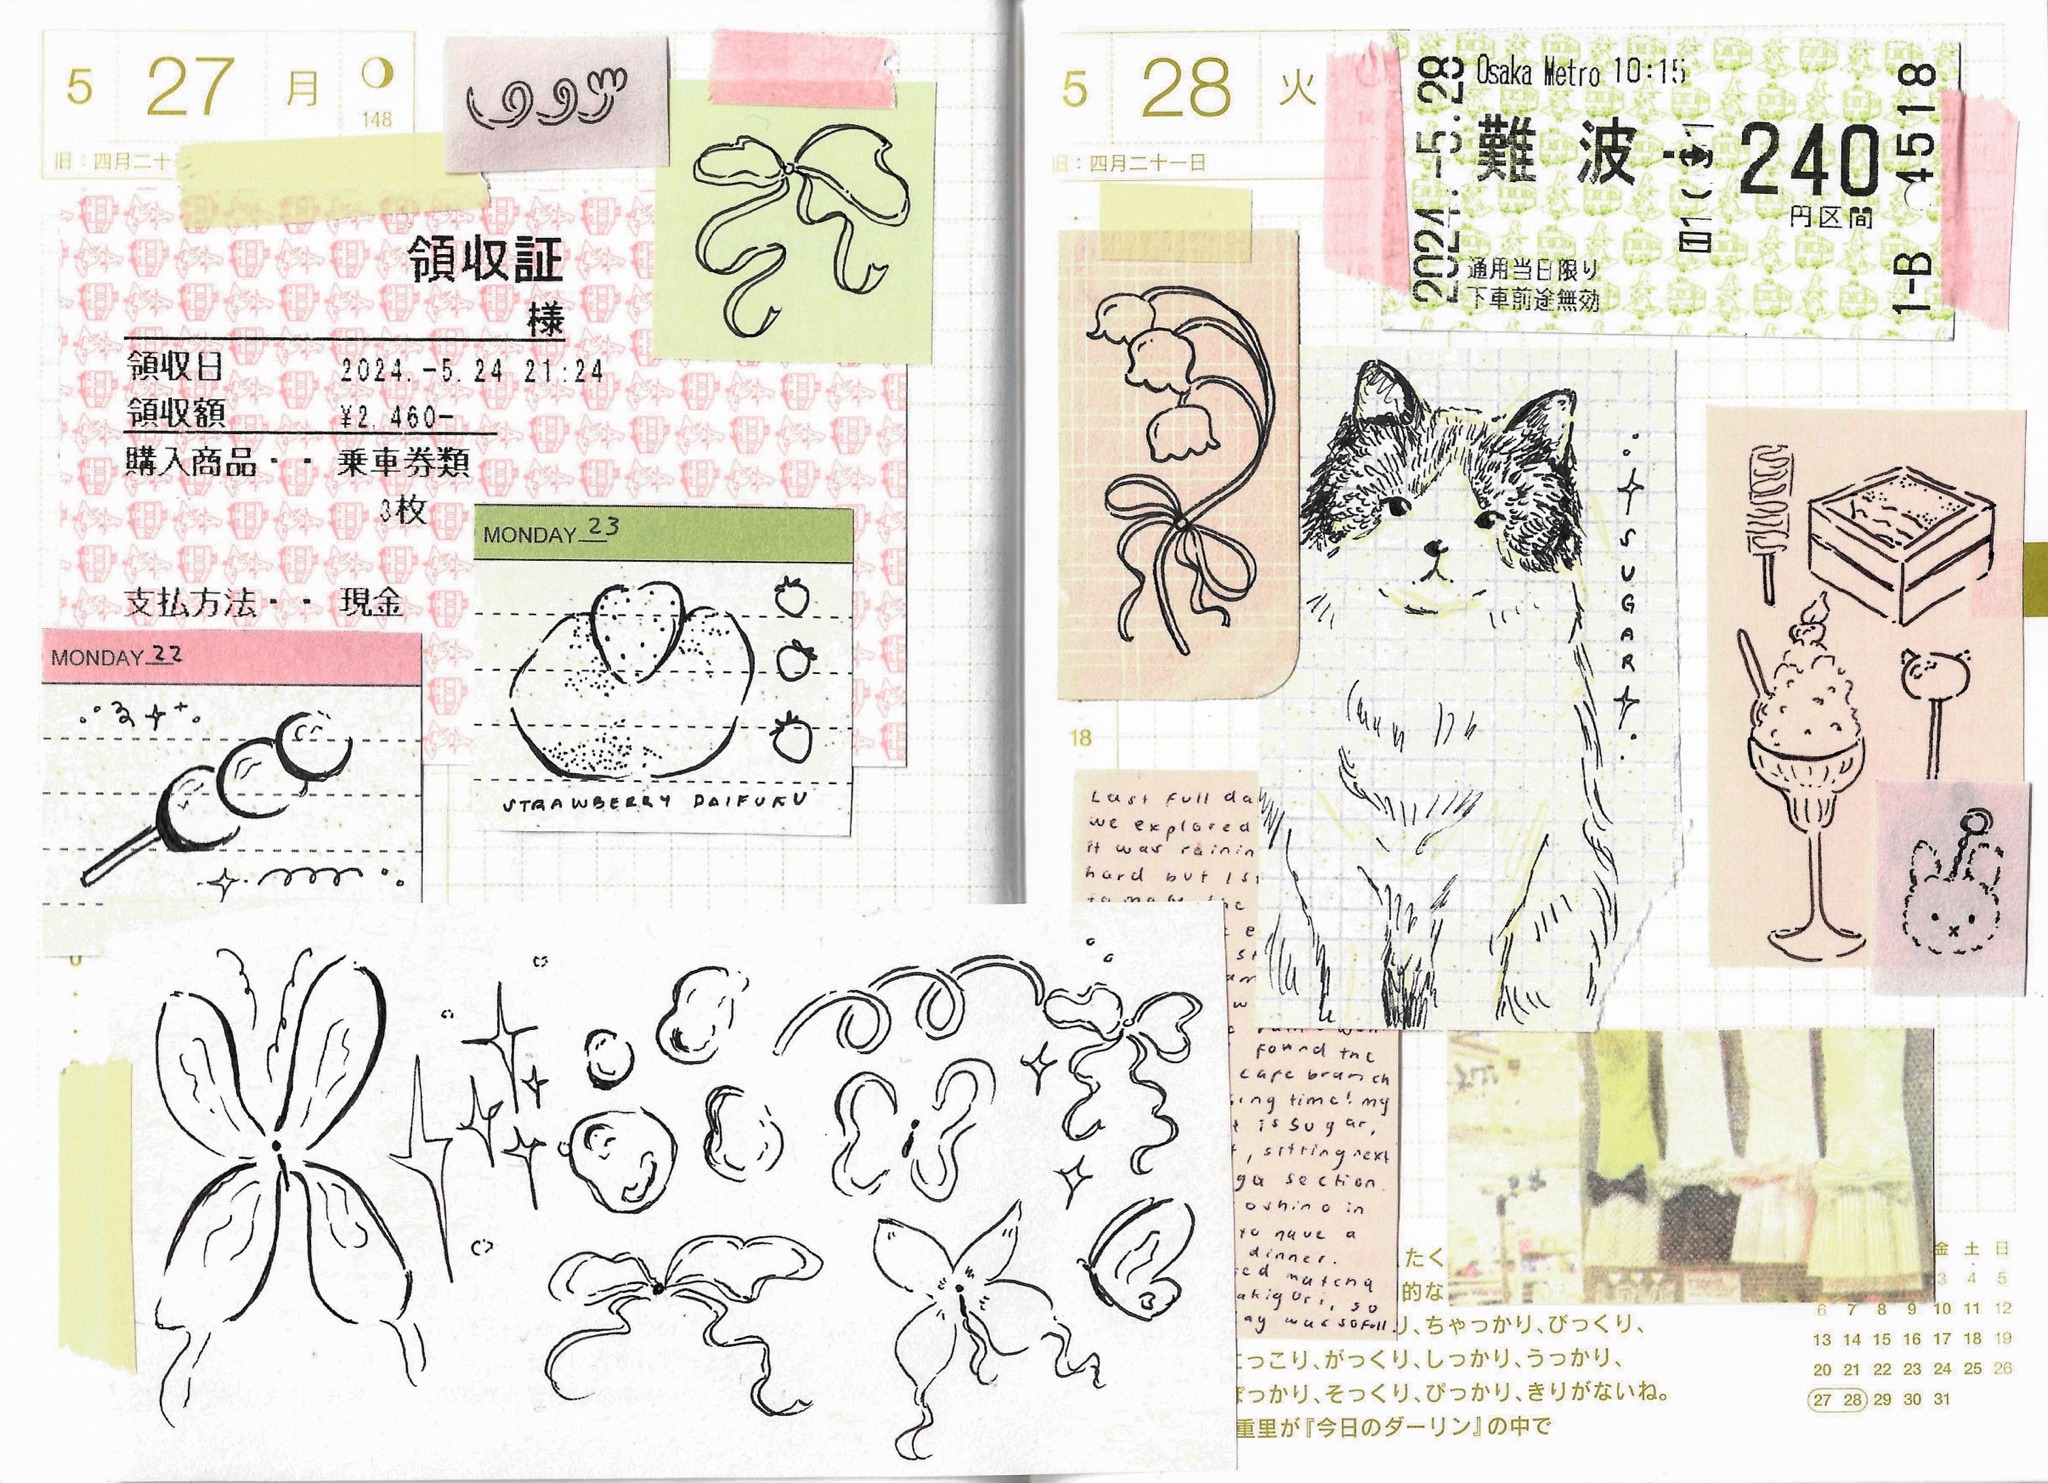 5 27 月
148
旧：四月二十
領収証
様
領収日 2024.-5.24 21:24
領収額 ¥2,460-
購入商品・・ 乗車券類
3枚
支払方法・・ 現金
MONDAY 23
STRAWBERRY DAIFUKU
MONDAY 22
5 28 火
旧：四月二十一日
2024.-5.28
Osaka Metro 10:15
難波
240
円区間
通用当日限り
下車前途無効
4518
1-B
SUGAR
18
Last full da
we explored
it was rainin
hard but I s
found the
cafe branch
sing time! my
t is sugar,
, sitting next
ga section
oshino in
to have a
dinner.
ed matcha
akigori, so
ay was so full.
たく
的な
り、ちゃっかり、びっくり、
こっこり、がっくり、しっかり、うっかり、
ぽっかり、そっくり、ぴっかり、きりがないね。
重里が『今日のダーリン』の中で
金 土 日
3 4 5
6 7 8 9 10 11 12
13 14 15 16 17 18 19
20 21 22 23 24 25 26
27 28 29 30 31